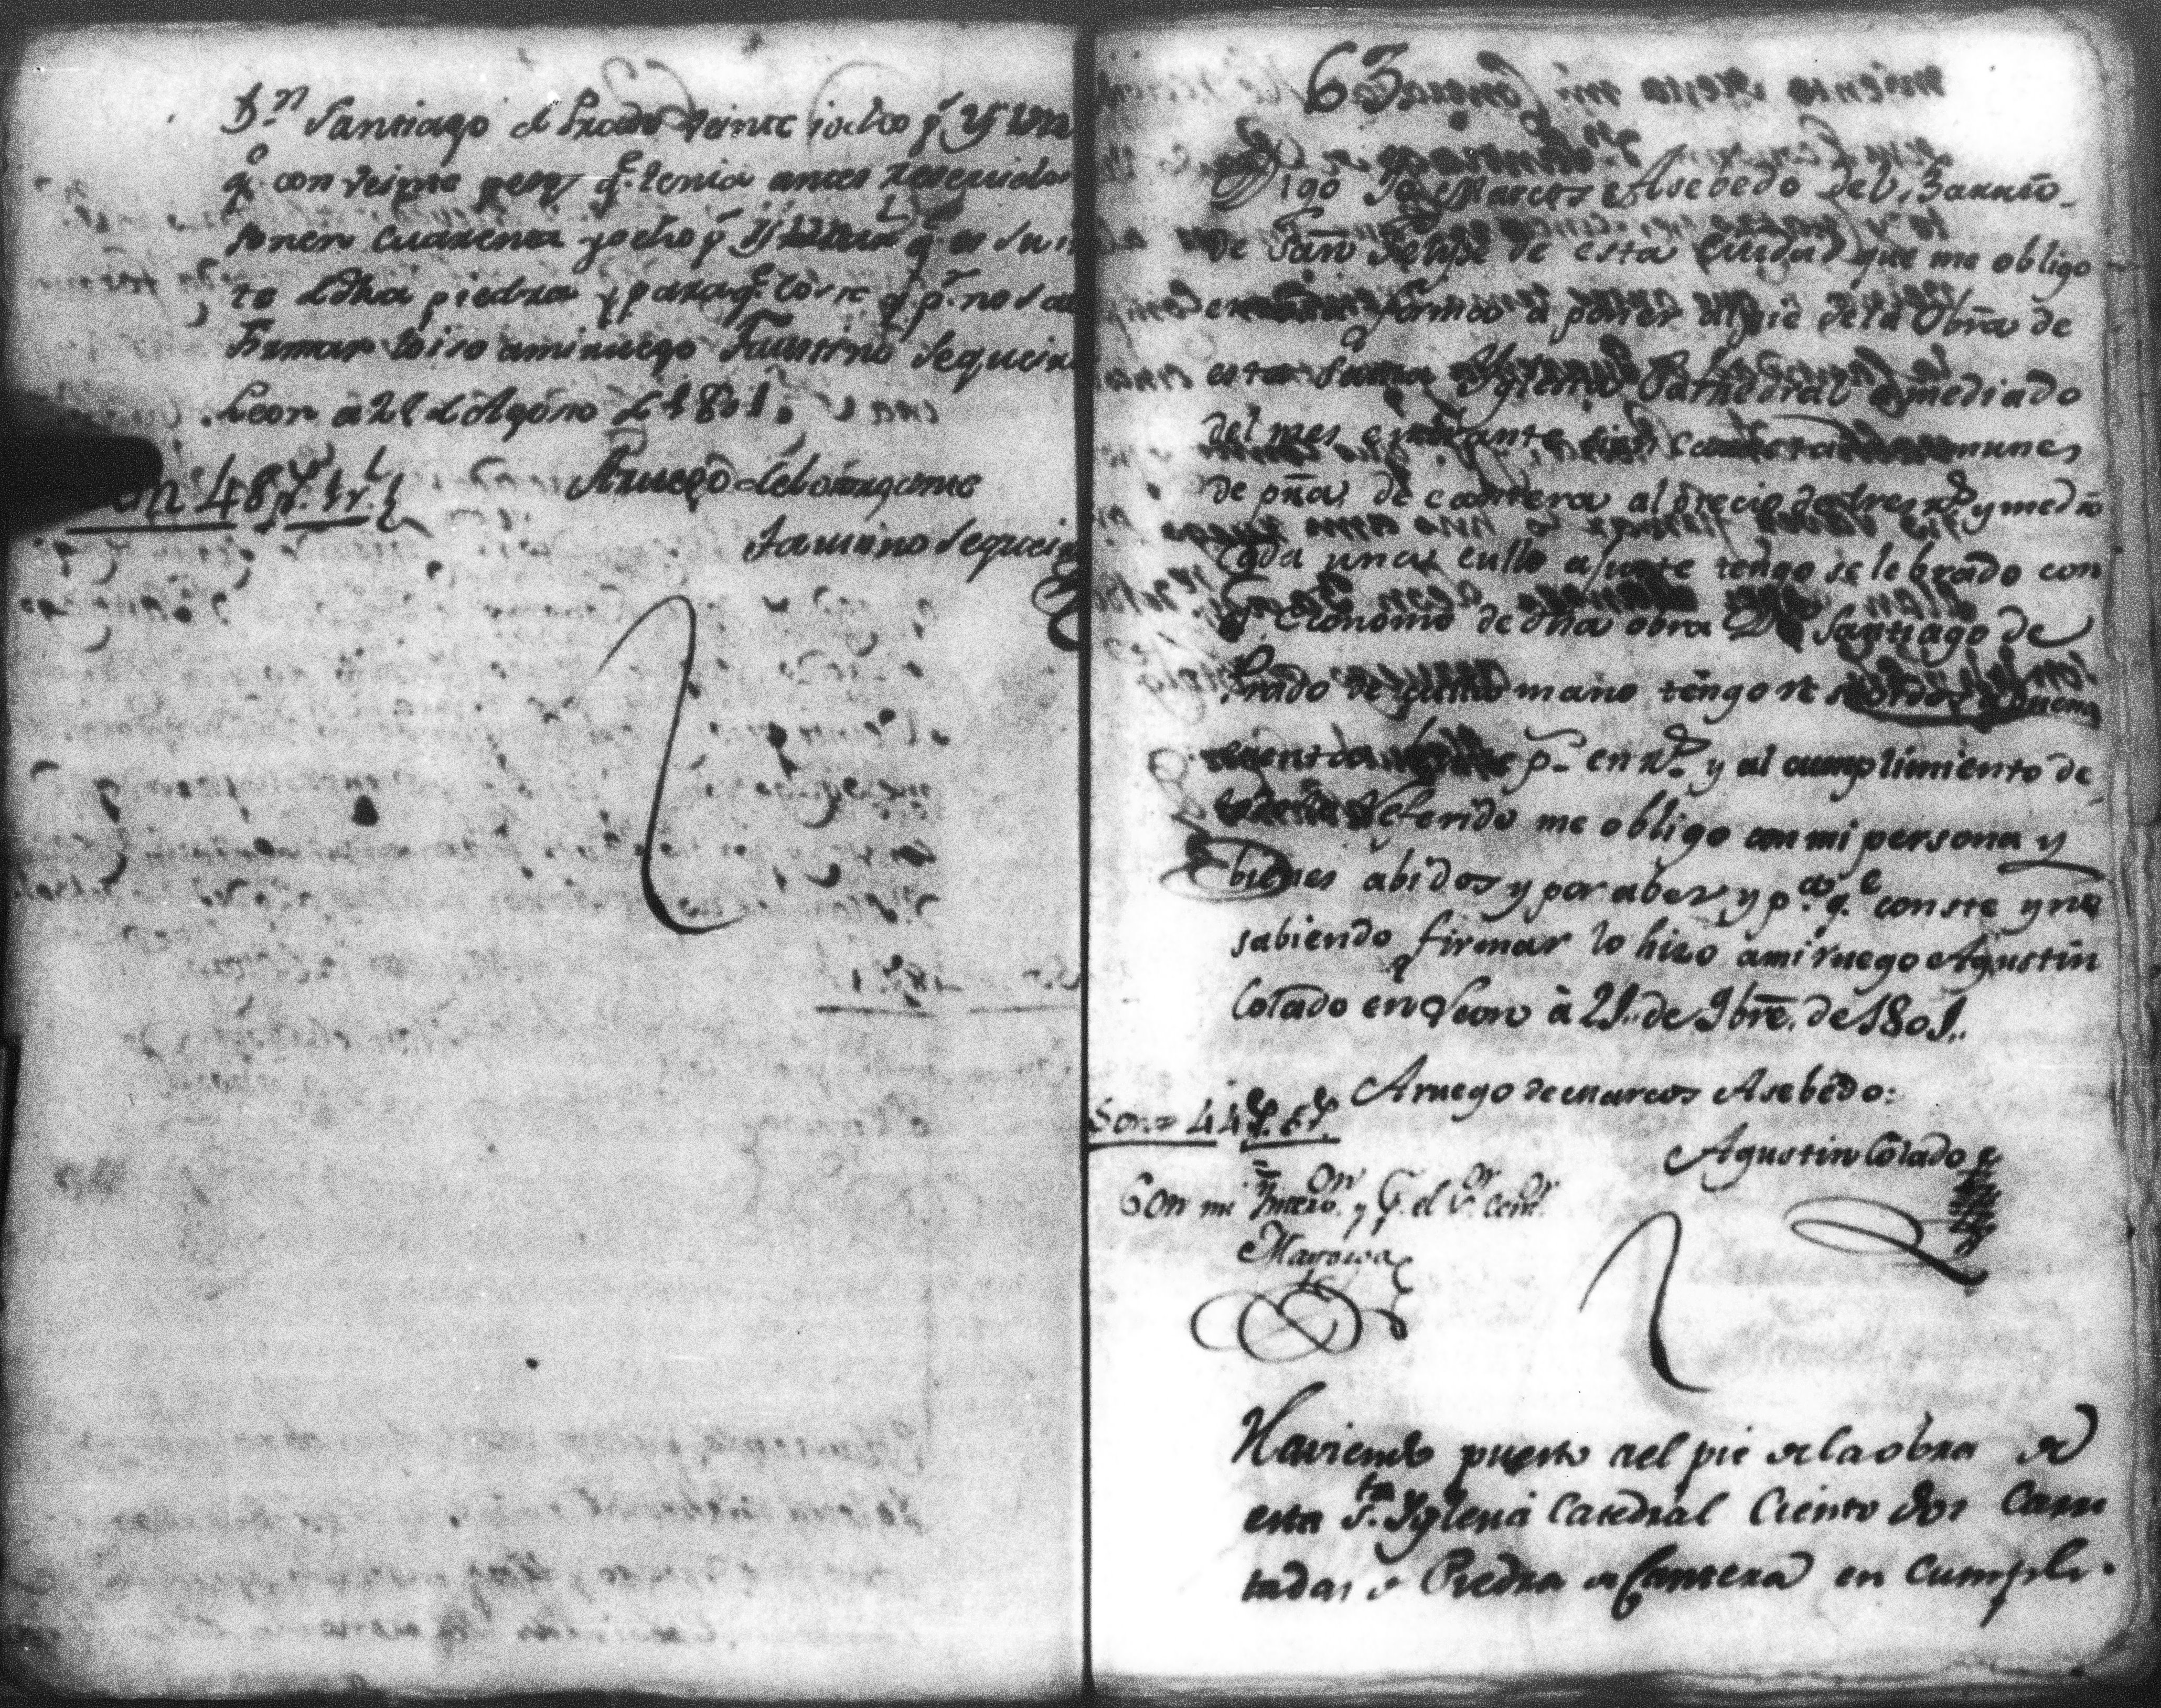 Dn Santiago de Prado veinte iocho ps
qe con veinte pesos qe tenia antes Reseuidos
sonen cuarenta yocho ps
te dedha piedra y paraqe coste y pr no saver
Firmar loiso amiruego Faustino Sequeira
Leon à 21 de Agosto de 1801.
Son 48 ps. 1 rl.
Aruego
Faustino Sequeira
63
Digo Yo Marcos Asebedo del Barrio
de San Felipe de esta Ciudad que me obligo
en forma à poner al pie dela Obra de
esta Santa Yglesia Cathedral à mediado
del mes entrante cien carretadas comunes
de pña de cantera al precio de tres rs y medio
cada una cullo ajuste tengo selebrado con
el Economo de dha obra Dn Santiago de
Prado de cuia mano tengo resebidos à buena
cuenta ps en rs y al cumplimiento de
lo referido me obligo con mi persona y
bienes abidos y por aber, y pa qe conste y no
sabiendo firmar lo hizo àmi ruego Agustin
Colado en Leon à 21. de 9bre. de 1801.
Aruego de Marcos Asebedo:
Son= 44 ps. 5 rs.
Agustin Colado
Con mi y Pr el Sr
Mayorga
Haviendo puesto nel pie dela obra de
esta Sta. Yglesia Catedral Ciento dos Carre
tadas de Piedra de Cantera en Cumpli-